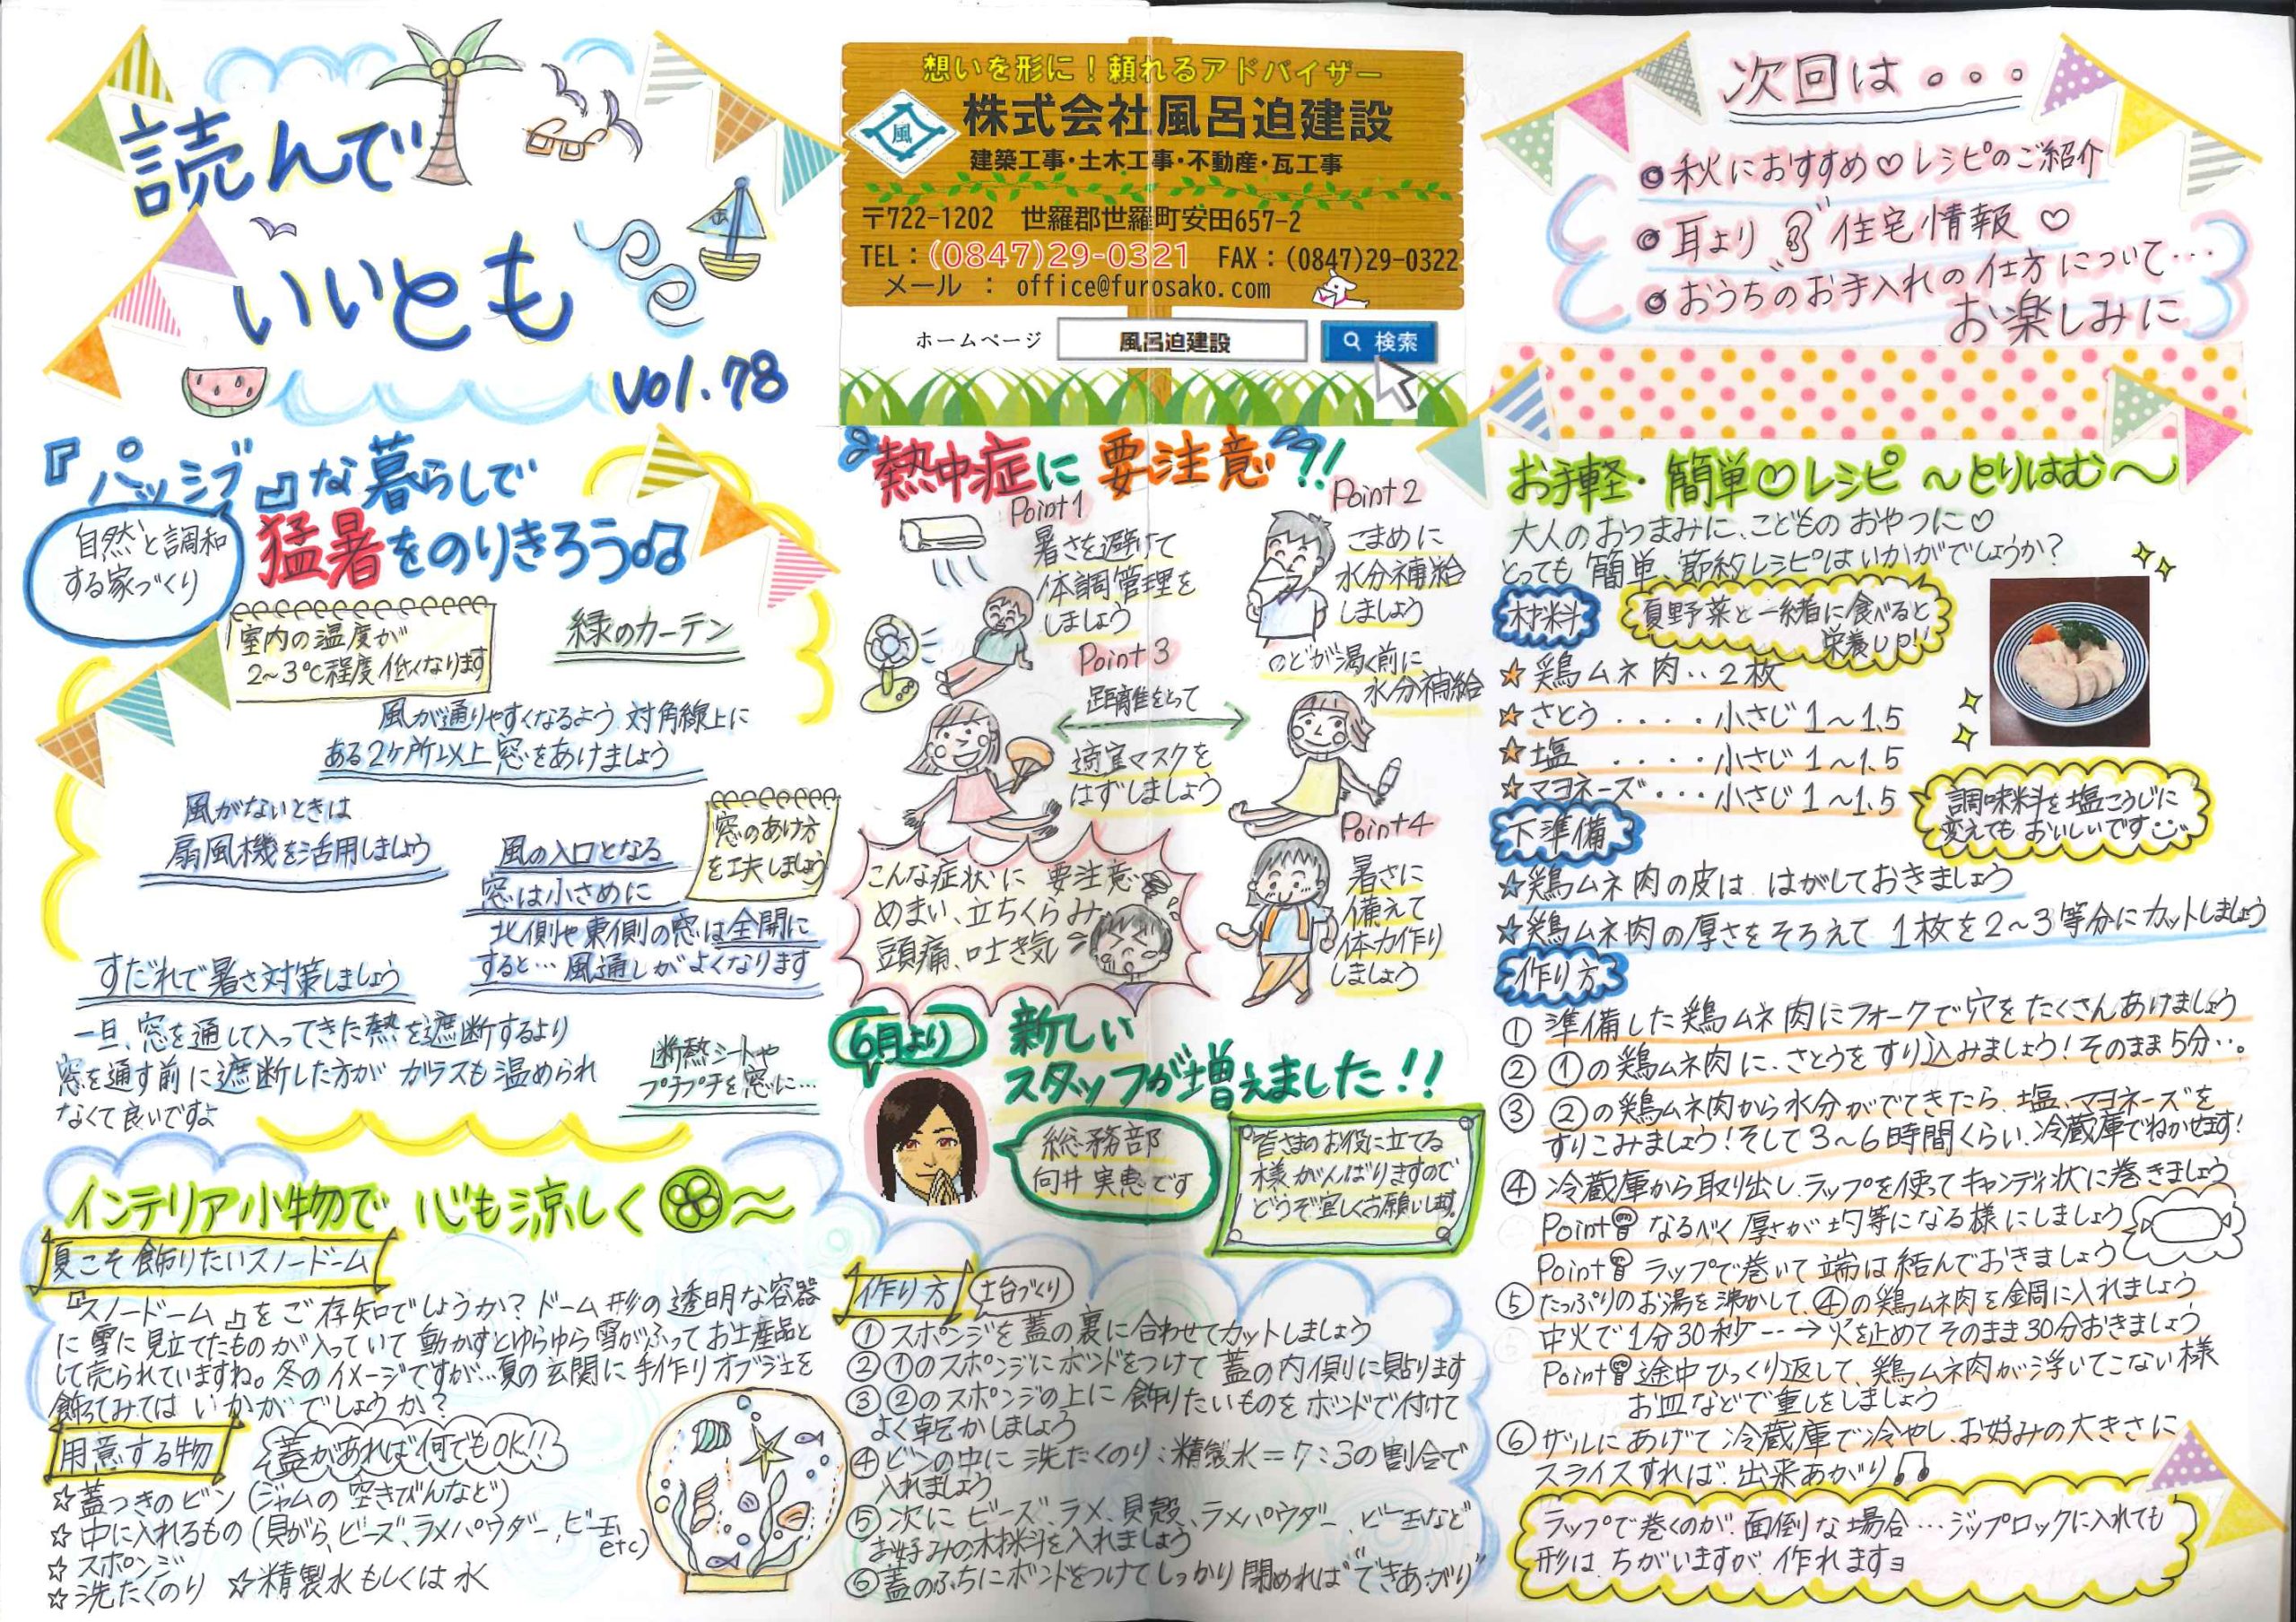 読んで
いいとも
vol.78
想いを形に！頼れるアドバイザー
風
株式会社風呂迫建設
建築工事・土木工事・不動産・瓦工事
〒722-1202 世羅郡世羅町安田657-2
TEL：(0847)29-0321 FAX：(0847)29-0322
メール ： office@furosako.com
ホームページ 風呂迫建設 検索
次回は。。。
◎秋におすすめ♡レシピのご紹介
◎耳より 住宅情報♡
◎おうちのお手入れの仕方について…
お楽しみに
『パッシブ』な暮らしで
猛暑をのりきろう♫
自然と調和
する家づくり
室内の温度が
2～3℃程度低くなります
緑のカーテン
風が通りやすくなるよう対角線上に
ある2ケ所以上窓をあけましょう
風がないときは
扇風機を活用しましょう
窓のあけ方
を工夫しましょう
風の入口となる
窓は小さめに
北側や東側の窓は全開に
すると…風通しがよくなります
すだれで暑さ対策しましょう
一旦、窓を通して入ってきた熱を遮断するより
窓を通す前に遮断した方がガラスも温められ
なくて良いですよ
断熱シートや
プチプチを窓に…
インテリア小物で 心も涼しく～
夏こそ飾りたいスノードーム
『スノードーム』をご存知でしょうか？ドーム形の透明な容器
に雪に見立てたものが入っていて動かすとゆらゆら雪がふってお土産品と
して売られていますね。冬のイメージですが…夏の玄関に手作りオブジェを
飾ってみてはいかがでしょうか？
用意する物
蓋があれば何でもOK!!
☆蓋つきのビン(ジャムの空きびんなど)
☆中に入れるもの(貝がら、ビーズ、ラメパウダー、ビー玉etc)
☆スポンジ
☆洗たくのり ☆精製水もしくは水
熱中症に要注意!!
Point1
暑さを避けて
体調管理を
しましょう
Point2
こまめに
水分補給
しましょう
のどが渇く前に
水分補給
Point3
距離をとって
適宜マスクを
はずしましょう
Point4
暑さに
備えて
体力作り
しましょう
こんな症状に要注意
めまい、立ちくらみ
頭痛、吐き気
6月より
新しい
スタッフが増えました!!
総務部
向井 実恵です
皆さまのお役に立てる
様がんばりますので
どうぞ宜しくお願いします。
作り方 土台づくり
①スポンジを蓋の裏に合わせてカットしましょう
②①のスポンジにボンドをつけて蓋の内側に貼ります
③②のスポンジの上に飾りたいものをボンドで付けて
よく乾かしましょう
④ビンの中に洗たくのり：精製水＝7：3の割合で
入れましょう
⑤次にビーズ、ラメ、貝殻、ラメパウダー、ビー玉など
お好みの材料を入れましょう
⑥蓋のふちにボンドをつけてしっかり閉めればできあがり
お手軽・簡単♡レシピ～とりはむ～
大人のおつまみに、こどものおやつに♡
とっても簡単、節約レシピはいかがでしょうか？
材料
夏野菜と一緒に食べると
栄養UP!!
☆鶏ムネ肉‥2枚
☆さとう‥‥小さじ1～1.5
☆塩‥‥小さじ1～1.5
☆マヨネーズ･･･小さじ1～1.5
調味料を塩こうじに
変えてもおいしいです
下準備
☆鶏ムネ肉の皮は はがしておきましょう
☆鶏ムネ肉の厚さをそろえて1枚を2～3等分にカットしましょう
作り方
①準備した鶏ムネ肉にフォークで穴をたくさんあけましょう
②①の鶏ムネ肉に、さとうをすり込みましょう！そのまま5分…。
③②の鶏ムネ肉から水分がでてきたら、塩、マヨネーズを
すりこみましょう！そして3～6時間くらい、冷蔵庫でねかせます!
④冷蔵庫から取り出し、ラップを使ってキャンディ状に巻きましょう
Point なるべく厚さが均等になる様にしましょう
Point ラップで巻いて端は結んでおきましょう
⑤たっぷりのお湯を沸かして、④の鶏ムネ肉を鍋に入れましょう
中火で1分30秒‐‐→火を止めてそのまま30分おきましょう
Point 途中ひっくり返して、鶏ムネ肉が浮いてこない様
お皿などで重しをしましょう
⑥ザルにあげて冷蔵庫で冷やし、お好みの大きさに
スライスすれば、出来あがり♫
ラップで巻くのが面倒な場合…ジップロックに入れても
形はちがいますが作れますヨ